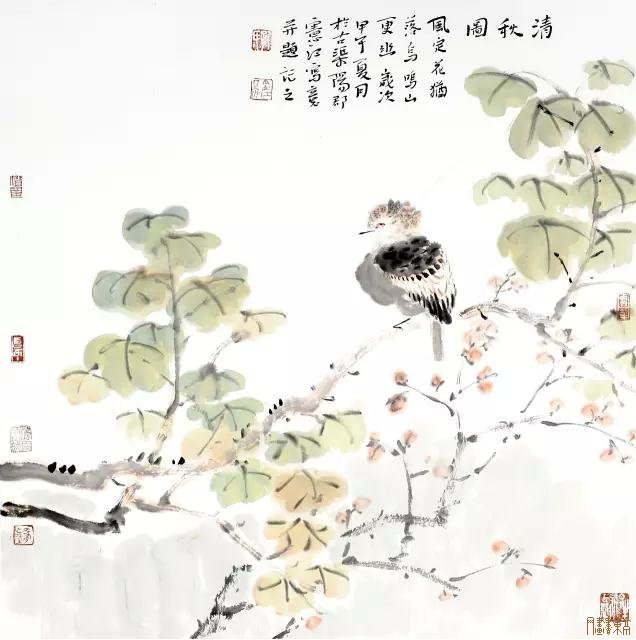 清秋圖
風定花猶
落鳥鳴山
更幽歲次
甲午夏月
於古渠陽郡
憲江寫
并題記之